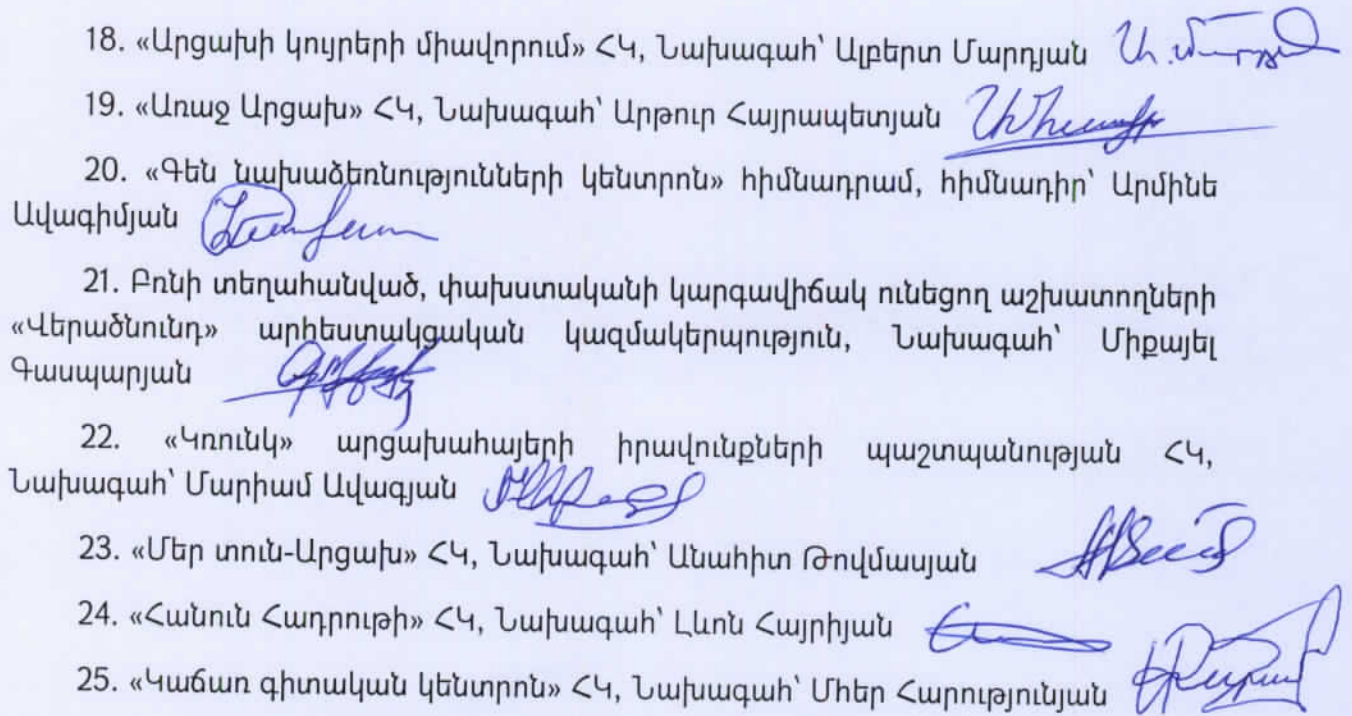 18. «Արցախի կույրերի միավորում» ՀԿ, Նախագահ՝ Ալբերտ Մարդյան
19. «Առաջ Արցախ» ՀԿ, Նախագահ՝ Արթուր Հայրապետյան
20. «Գեն նախաձեռնությունների կենտրոն» հիմնադրամ, հիմնադիր՝ Արմինե
Ավագիմյան
21. Բռնի տեղահանված, փախստականի կարգավիճակ ունեցող աշխատողների
«Վերածնունդ» արհեստակցական կազմակերպություն, Նախագահ՝ Միքայել
Գասպարյան
22. «Կռունկ» արցախահայերի իրավունքների պաշտպանության ՀԿ,
Նախագահ՝ Մարիամ Ավագյան
23. «Մեր տուն-Արցախ» ՀԿ, Նախագահ՝ Անահիտ Թովմասյան
24. «Հանուն Հադրութի» ՀԿ, Նախագահ՝ Լևոն Հայրիյան
25. «Կաճառ գիտական կենտրոն» ՀԿ, Նախագահ՝ Մհեր Հարությունյան